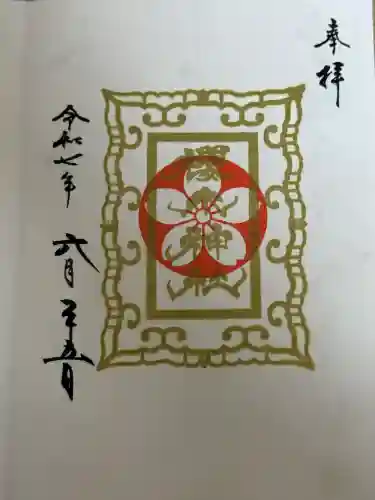 奉拝
櫻木神社
令和七年六月二十五日